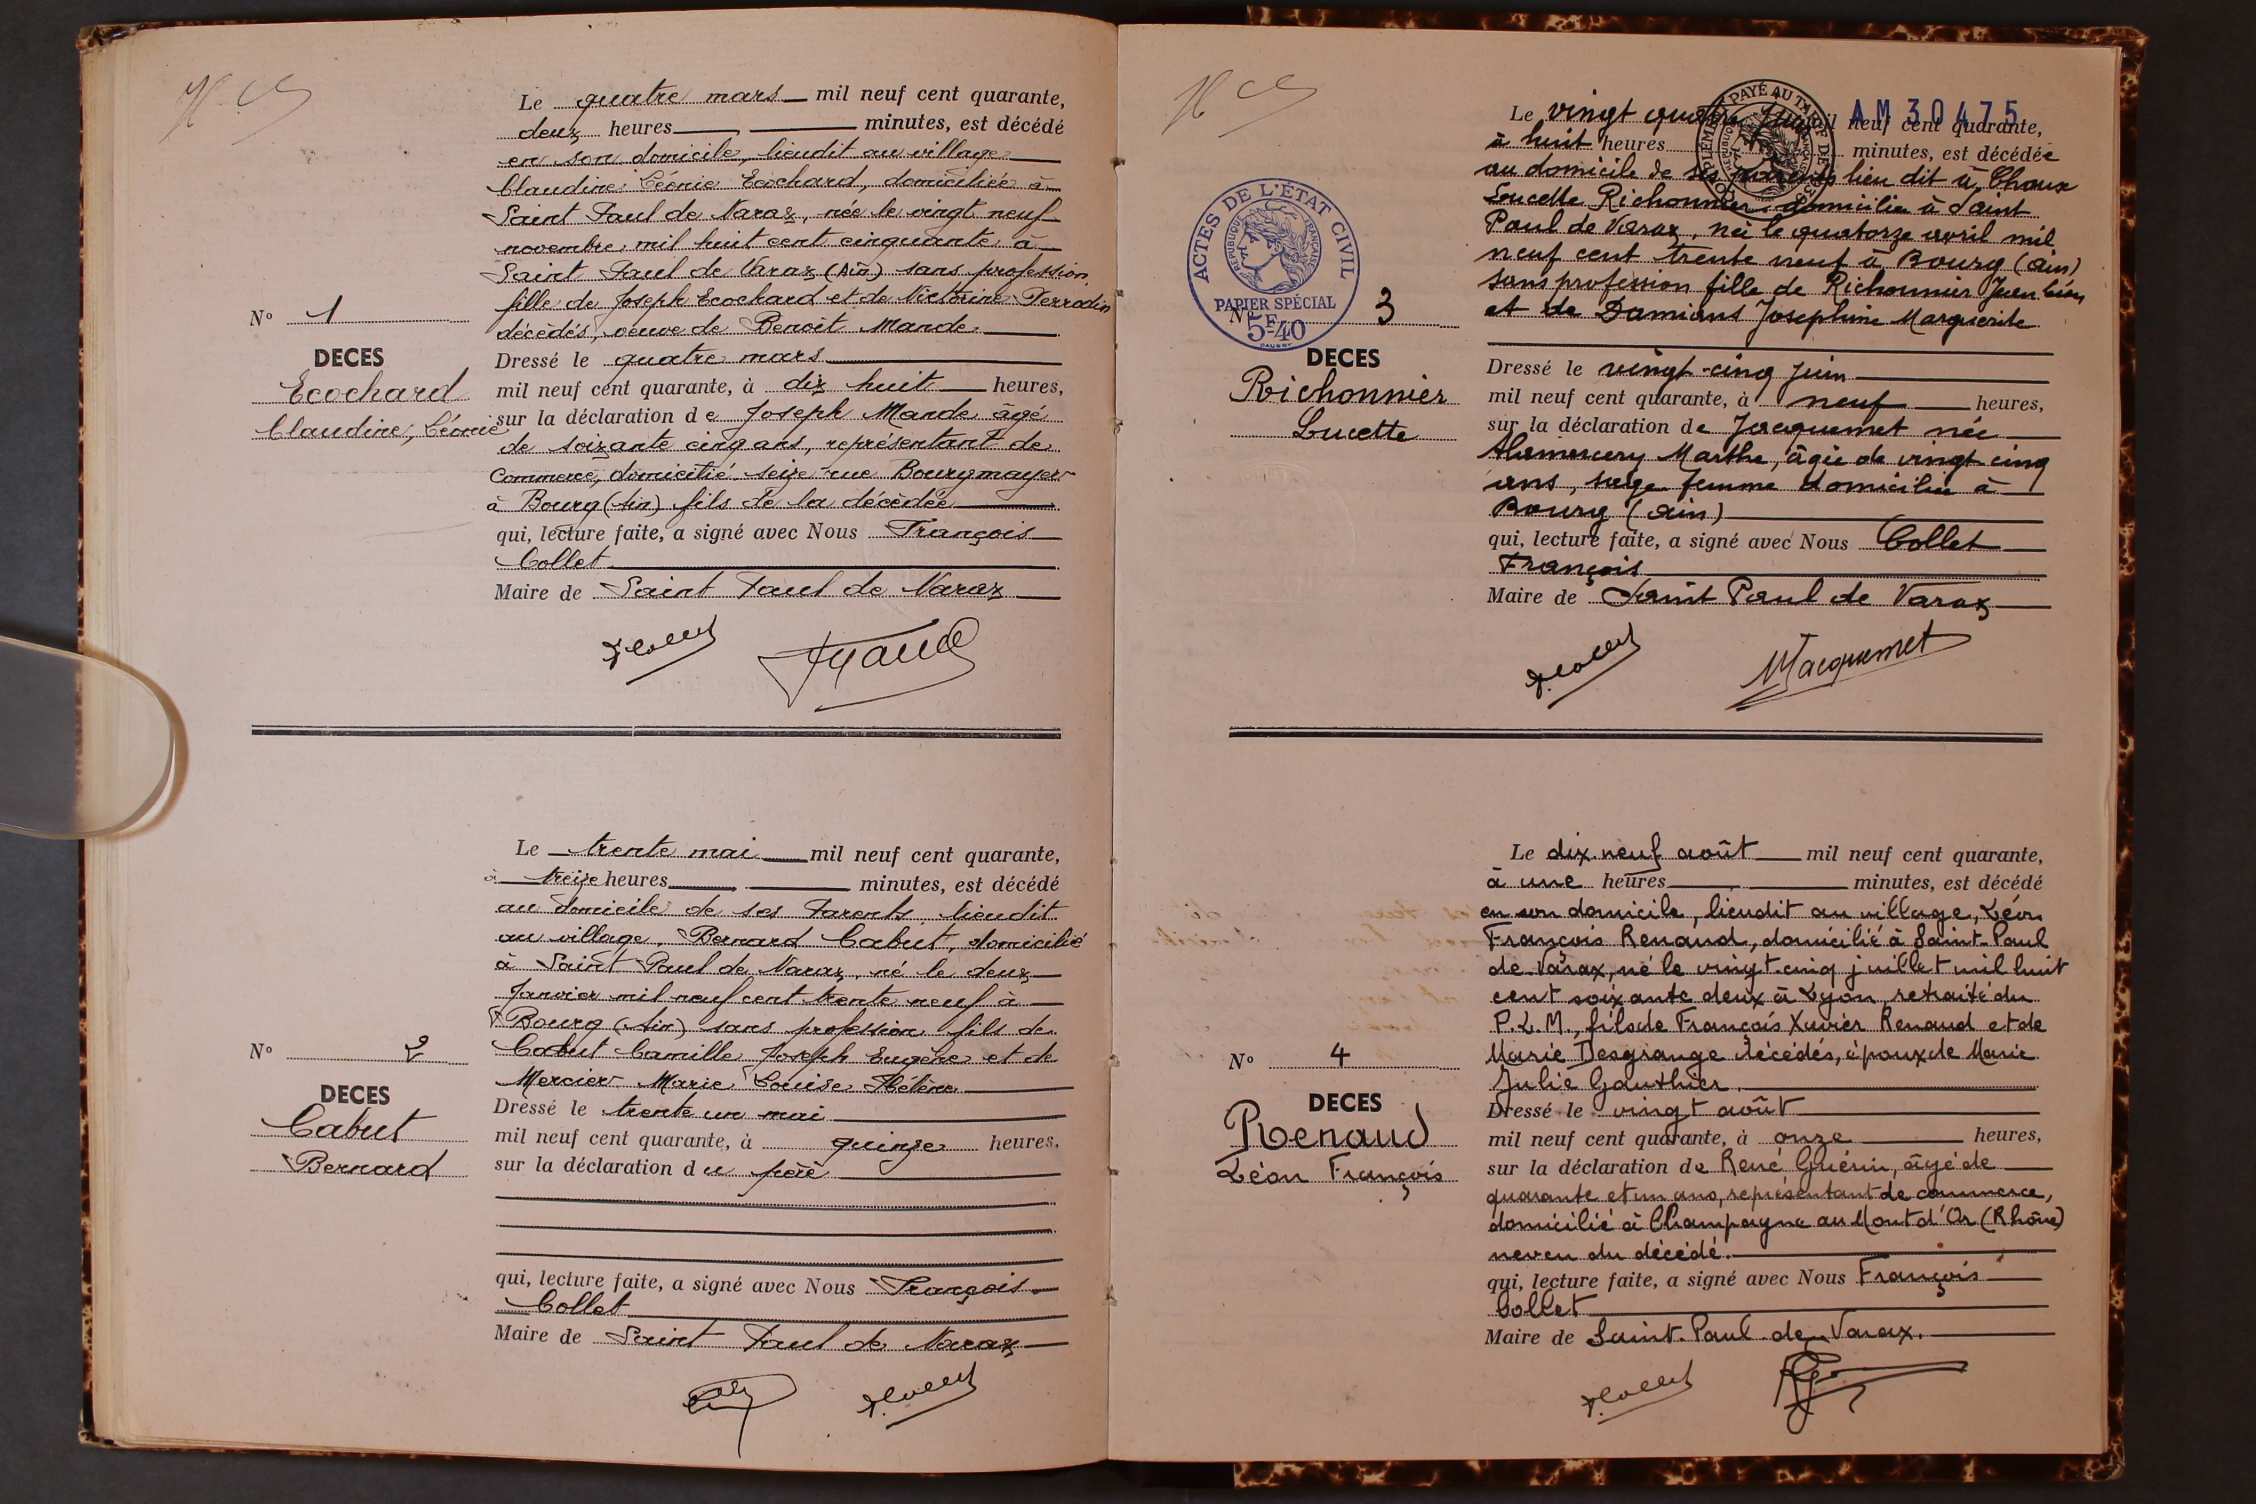 Le quatre mars mil neuf cent quarante,
deux heures minutes, est décédé
en son domicile, lieudit au village
Claudine Léonie Ecochard, domiciliée à
Saint Paul de Varax, née le vingt neuf
novembre mil huit cent cinquante à
Saint Paul de Varax (Ain) sans profession,
fille de Joseph Ecochard et de Victorine Perrodin
décédés, veuve de Benoît Mande
N° 1
DECES
Ecochard
Claudine, Léonie
Dressé le quatre mars
mil neuf cent quarante, à dix huit heures,
sur la déclaration de Joseph Mande âgé
de soixante cinq ans, représentant de
commerce, domicilié seize rue Bourgmayer
à Bourg (Ain) fils de la décédée
qui, lecture faite, a signé avec Nous François
Collet
Maire de Saint Paul de Varax
F. Collet
Le trente mai mil neuf cent quarante,
à treize heures minutes, est décédé
au domicile de ses Parents lieudit
au village, Bernard Cabut, domicilié
à Saint Paul de Varax, né le deux
Janvier mil neuf cent trente neuf à
Bourg (Ain) sans profession fils de
Cabut Camille Joseph Eugène et de
Mercier Marie Louise Hélène
N° 2
DECES
Cabut
Bernard
Dressé le trente un mai
mil neuf cent quarante, à quinze heures.
sur la déclaration du père
qui, lecture faite, a signé avec Nous François
Collet
Maire de Saint Paul de Varax
F. Collet
AM 30475
Le vingt quatre juin mil neuf cent quarante,
à huit heures minutes, est décédée
au domicile de ses parents lieu dit à Chaux
Lucette Richonnier domiciliée à Saint
Paul de Varax, née le quatorze avril mil
neuf cent trente neuf à Bourg (Ain)
sans profession fille de Richonnier Jean Léon
et de Damians Josephine Marguerite
ACTES DE L'ÉTAT CIVIL
RÉPUBLIQUE FRANÇAISE
PAPIER SPÉCIAL
5F40
N° 3
DECES
Richonnier
Lucette
Dressé le vingt-cinq juin
mil neuf cent quarante, à neuf heures,
sur la déclaration de Jacquemet née
Marthe, âgée de vingt cinq
ans, sage femme domiciliée à
Bourg (Ain)
qui, lecture faite, a signé avec Nous Collet
François
Maire de Saint Paul de Varax
F. Collet MJacquemet
Le dix neuf août mil neuf cent quarante,
à une heures minutes, est décédé
en son domicile, lieudit au village, Léon
François Renaud, domicilié à Saint-Paul
de Varax, né le vingt-cinq juillet mil huit
cent soixante deux à Lyon, retraité du
P.L.M., fils de François Xavier Renaud et de
Marie Desgrange décédés, époux de Marie
Julie Gauthier.
N° 4
DECES
Renaud
Léon François
Dressé le vingt août
mil neuf cent quarante, à onze heures,
sur la déclaration de René Guérin, âgé de
quarante et un ans, représentant de commerce,
domicilié à Champagne au Mont d'Or (Rhône)
neveu du décédé.
qui, lecture faite, a signé avec Nous François
Collet
Maire de Saint-Paul-de-Varax.
F. Collet